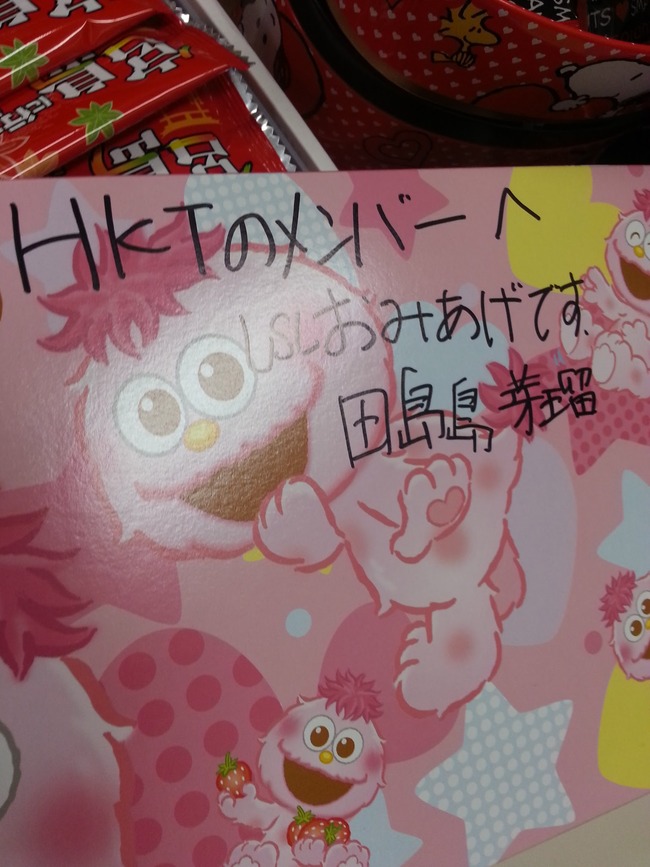 HKTのメンバーへ
USJおみあげです.
田島島芽瑠